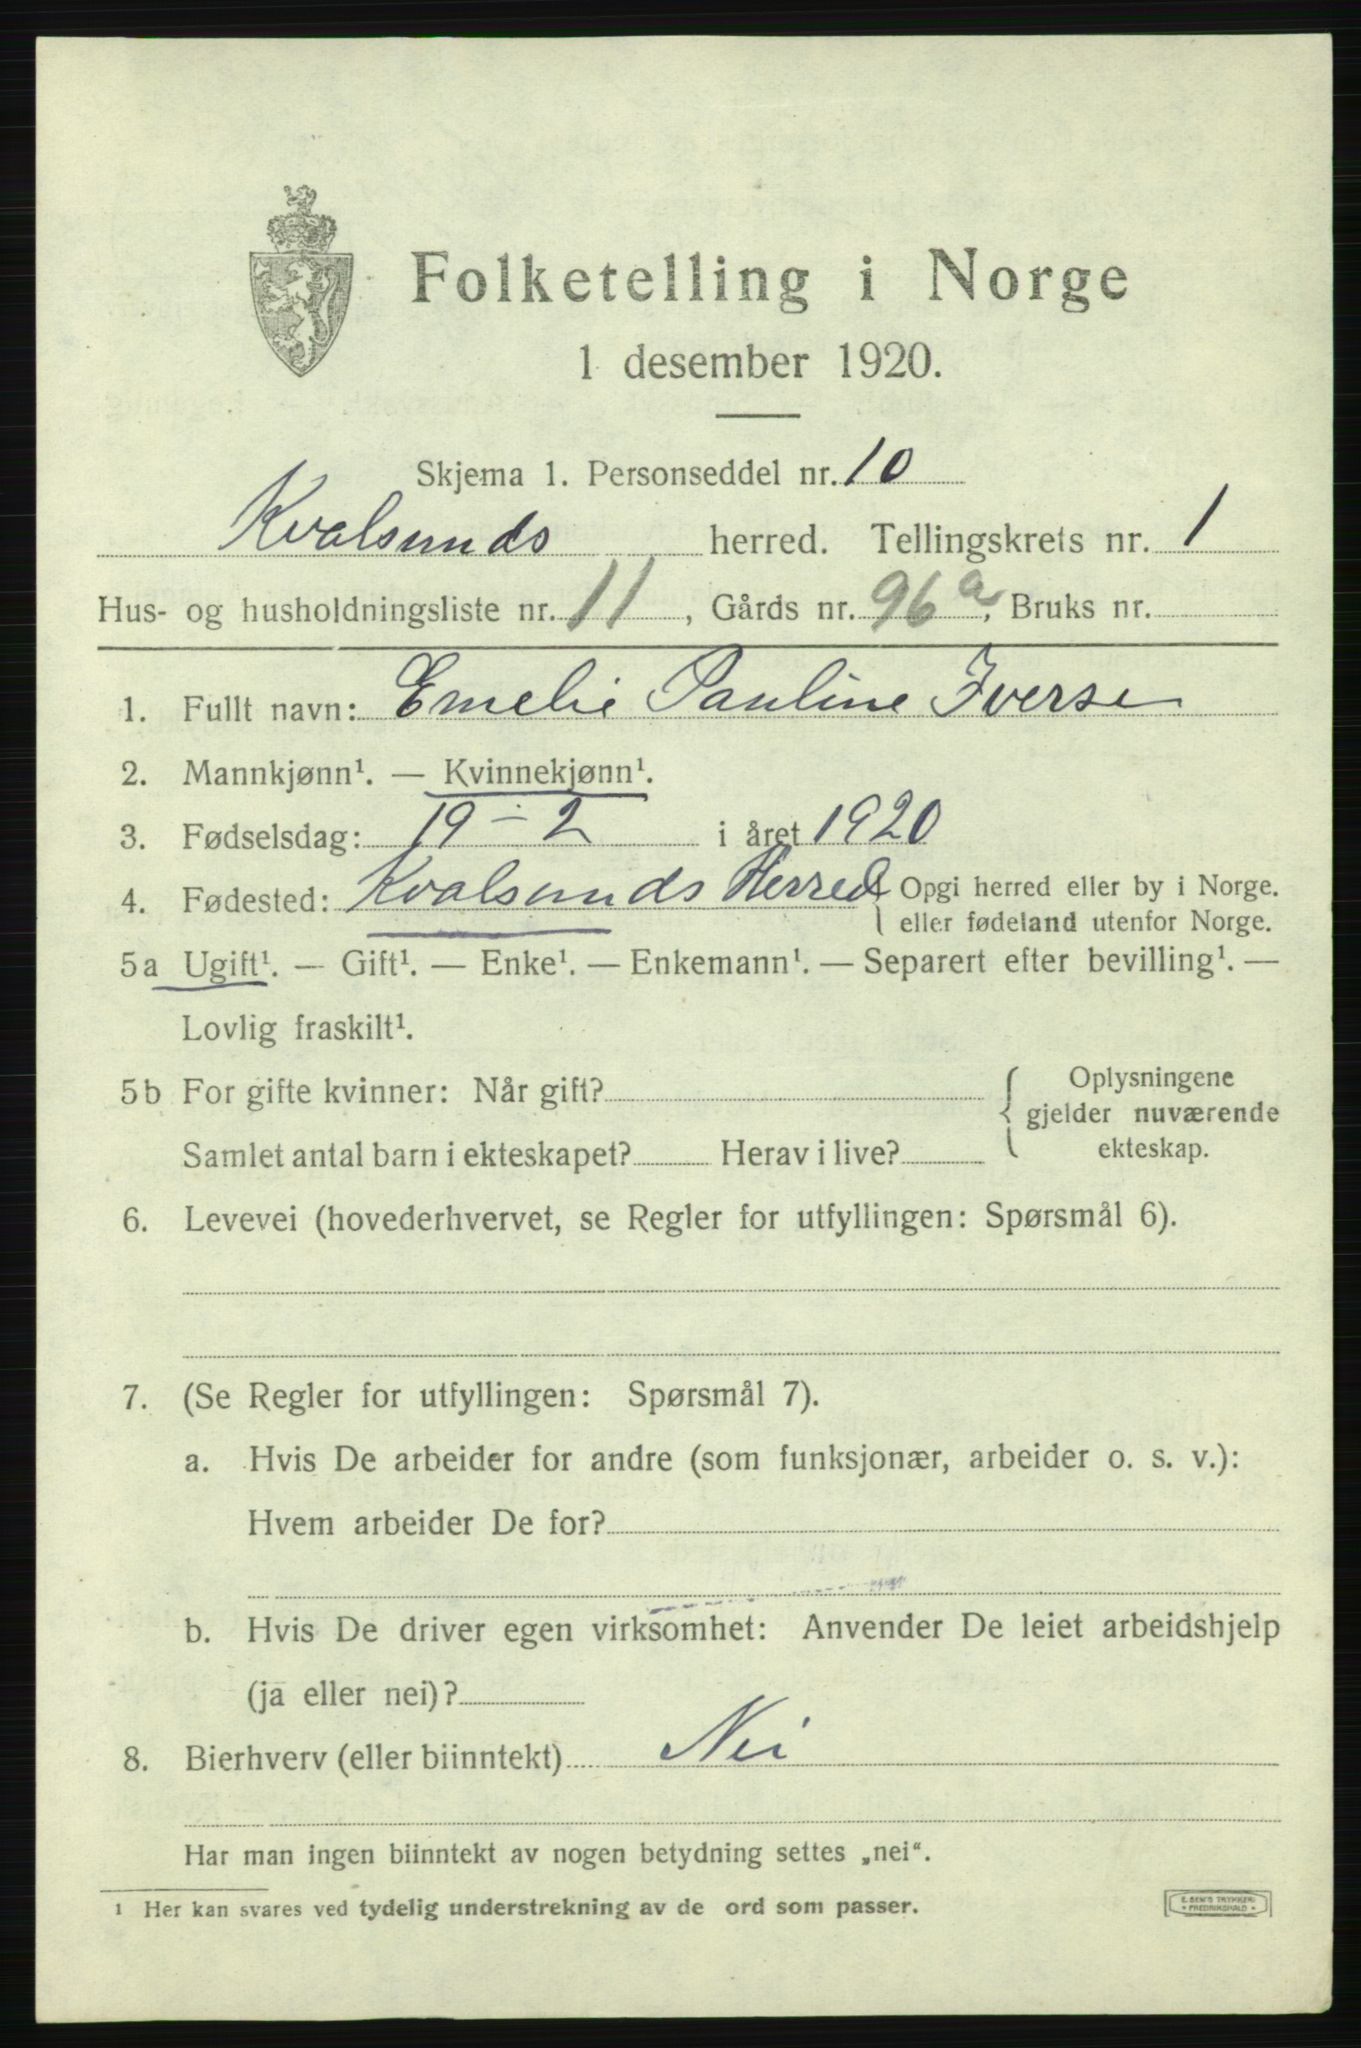 Folketelling i Norge
1 desember 1920.
Skjema 1. Personseddel nr. 10
Kvalsunds herred. Tellingskrets nr. 1
Hus- og husholdningsliste nr. 11, Gårds nr. 96 a, Bruks nr.
1. Fullt navn: Emelie Pauline Iversen
2. Mannkjønn¹. — Kvinnekjønn¹.
3. Fødselsdag: 19 - 2 i året 1920
4. Fødested: Kvalsunds Herred { Opgi herred eller by i Norge.
eller fødeland utenfor Norge.
5a Ugift¹. — Gift¹. — Enke¹. — Enkemann¹. — Separert efter bevilling¹. —
Lovlig fraskilt¹.
5b For gifte kvinner: Når gift? { Oplysningene
gjelder nuværende
Samlet antal barn i ekteskapet? Herav i live? ekteskap.
6. Levevei (hovederhvervet, se Regler for utfyllingen: Spørsmål 6).
7. (Se Regler for utfyllingen: Spørsmål 7).
a. Hvis De arbeider for andre (som funksjonær, arbeider o. s. v.):
Hvem arbeider De for?
b. Hvis De driver egen virksomhet: Anvender De leiet arbeidshjelp
(ja eller nei)?
8. Bierhverv (eller biinntekt) Nei
Har man ingen biinntekt av nogen betydning settes „nei“.
¹ Her kan svares ved tydelig understrekning av de ord som passer.
FREDRIKSHALD